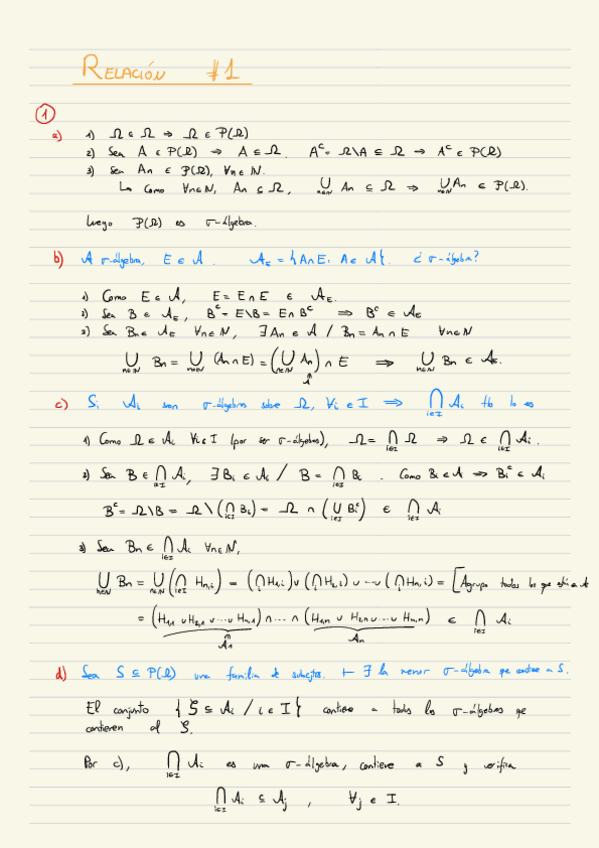 RELACIÓN #1
1
a) 1) Ω ⊆ Ω ⇒ Ω ∈ P(Ω)
2) Sea A ∈ P(Ω) ⇒ A ⊆ Ω. Aᶜ = Ω\A ⊆ Ω ⇒ Aᶜ ∈ P(Ω)
3) Sea An ∈ P(Ω), ∀n∈ℕ.
Como ∀n∈ℕ, An ⊆ Ω, ⋃n∈ℕ An ⊆ Ω ⇒ ⋃n∈ℕ An ∈ P(Ω).
Luego P(Ω) es σ-álgebra.
b) A σ-álgebra, E ∈ A. A_E = {A∩E: A ∈ A}. ¿σ-álgebra?
1) Como E ∈ A, E = E∩E ∈ A_E.
2) Sea B ∈ A_E, Bᶜ = E\B = E∩Bᶜ ⇒ Bᶜ ∈ A_E
3) Sea Bn ∈ A_E ∀n∈ℕ, ∃An ∈ A / Bn = An∩E ∀n∈ℕ
⋃n∈ℕ Bn = ⋃n∈ℕ (An∩E) = (⋃n∈ℕ An) ∩ E ⇒ ⋃n∈ℕ Bn ∈ A_E.
A
c) Si Ai son σ-álgebras sobre Ω, ∀i∈I ⇒ ⋂i∈I Ai tb lo es
1) Como Ω ∈ Ai ∀i∈I (por ser σ-álgebras), Ω = ⋂i∈I Ω ⇒ Ω ∈ ⋂i∈I Ai.
2) Sea B ∈ ⋂i∈I Ai, ∃Bi ∈ Ai / B = ⋂i∈I Bi. Como Bi ∈ A ⇒ Biᶜ ∈ Ai
Bᶜ = Ω\B = Ω\(⋂i∈I Bi) = Ω ∩ (⋃i∈I Biᶜ) ∈ ⋂i∈I Ai
3) Sea Bn ∈ ⋂i∈I Ai ∀n∈ℕ,
⋃n∈ℕ Bn = ⋃n∈ℕ (⋂i∈I Hn,i) = (⋂H1,i) ∪ (⋂H2,i) ∪ ... ∪ (⋂Hn,i) = [Agrupo todos los que están A
= (H1,1 ∪ H2,1 ∪ ... ∪ Hn,1) ∩ ... ∩ (H1,n ∪ H2,n ∪ ... ∪ Hn,n) ∈ ⋂i∈I Ai
A1 An
d) Sea S ⊆ P(Ω) una familia de subcjtos. ⊢ ∃ la menor σ-álgebra que contiene a S.
El conjunto {S ⊆ Ai / i∈I} contiene a todas las σ-álgebras que
contienen al S.
Por c), ⋂i∈I Ai es una σ-álgebra, contiene a S y verifica
⋂i∈I Ai ⊆ Aj, ∀j∈I.